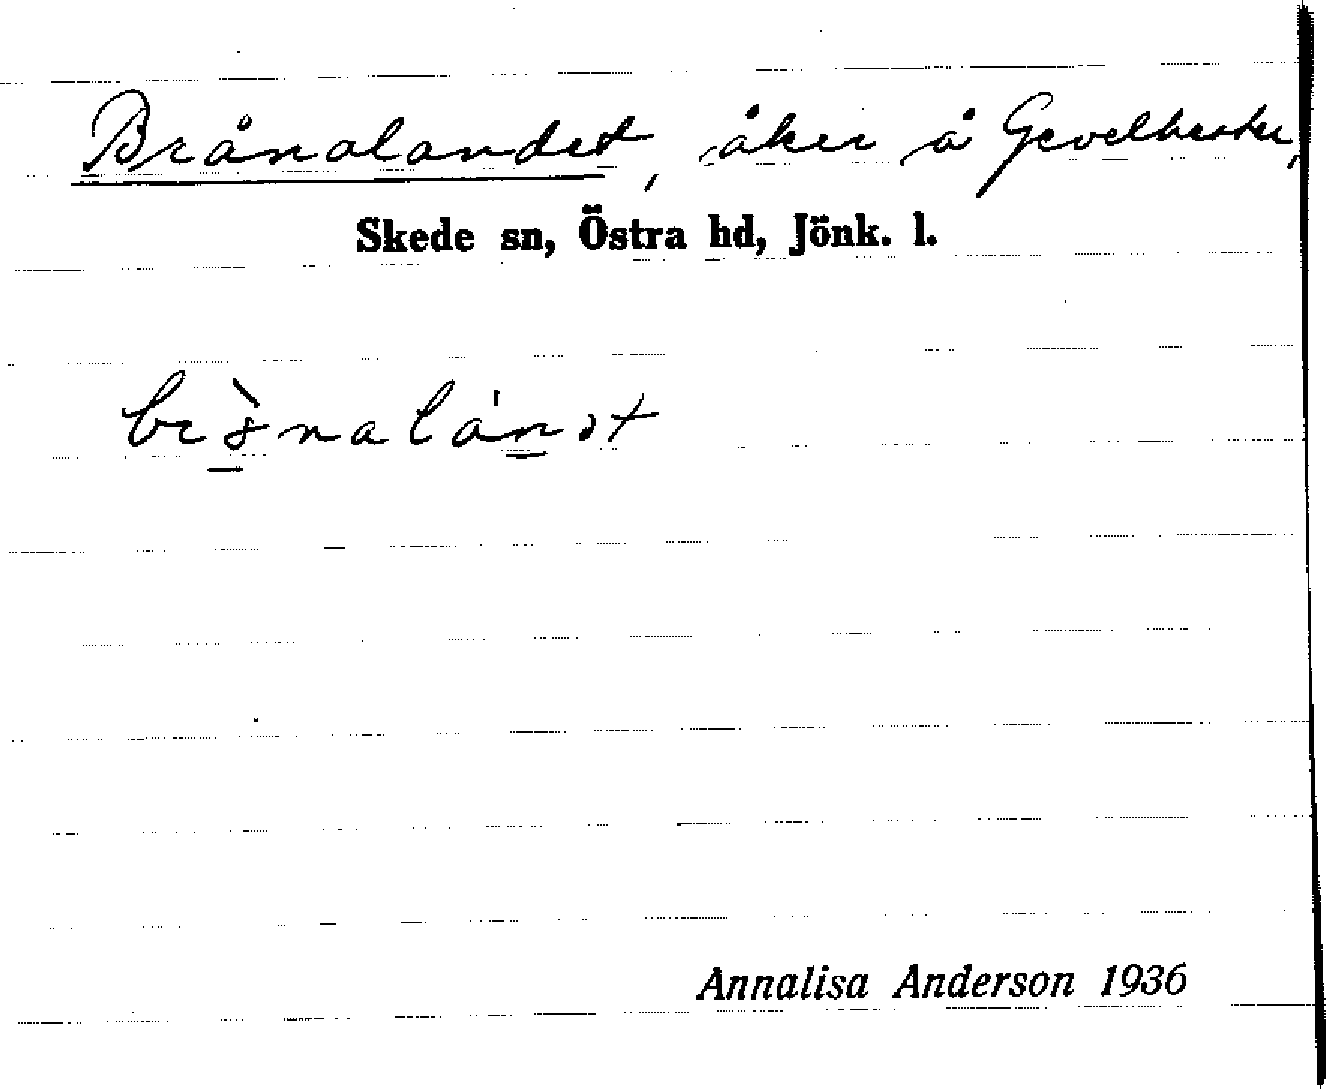 Brånalandet, åker å
Skede sn, Östra hd, Jönk. l.
Annalisa Anderson 1936